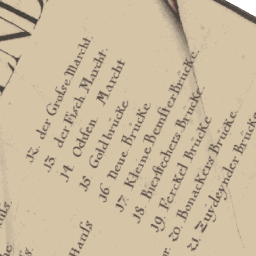 END
12 der Grosse Marcht.
13 der Fisch Marcht.
14 Ochsen Marcht
15 Gold brücke
16 Neue Brücke.
17 Kleine Bemster Brücke.
18 Bierstechers Brücke
19 Ferckel Brücke
20 Bonackers Brücke.
21 Zuydeynder Brücke
Hauss